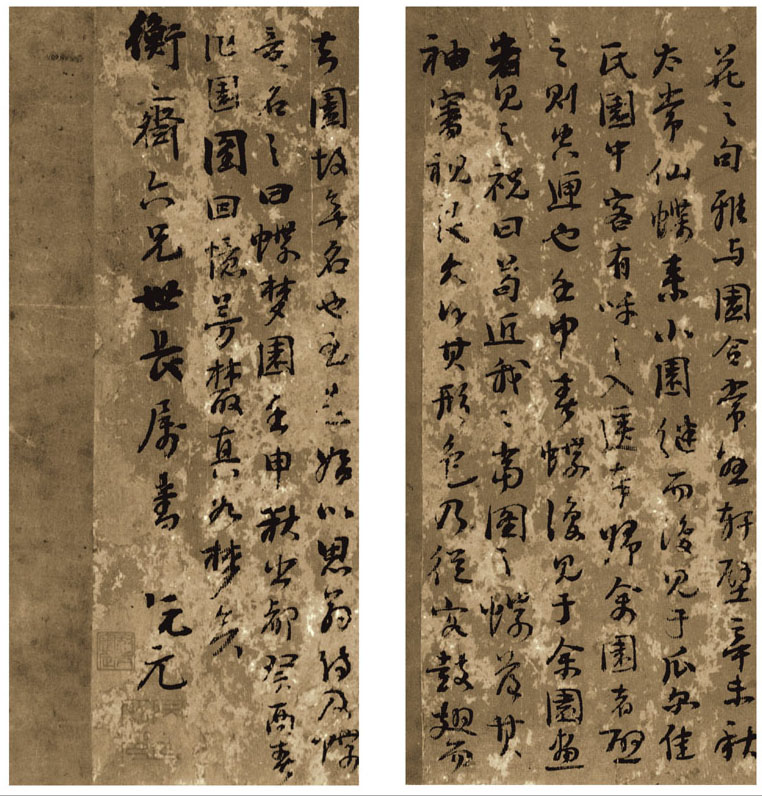 花之句雅与園合常懸軒壁辛未秋
太常仙蝶来小園継而復見于瓜尔佳
氏園中客有呼之入匣奉歸余園者啟
之則空匣也壬申春蝶復見于余園畫
者見之祝曰苟近我〻當圖之蝶落其
袖審視良久得其形色乃從容鼓翅而
去園故無名也至是始以思翁詩及蝶
意名之曰蝶梦園壬申秋出都癸酉春
作園圖回憶芳叢真如梦矣
衡之齋六兄世長属書 阮元